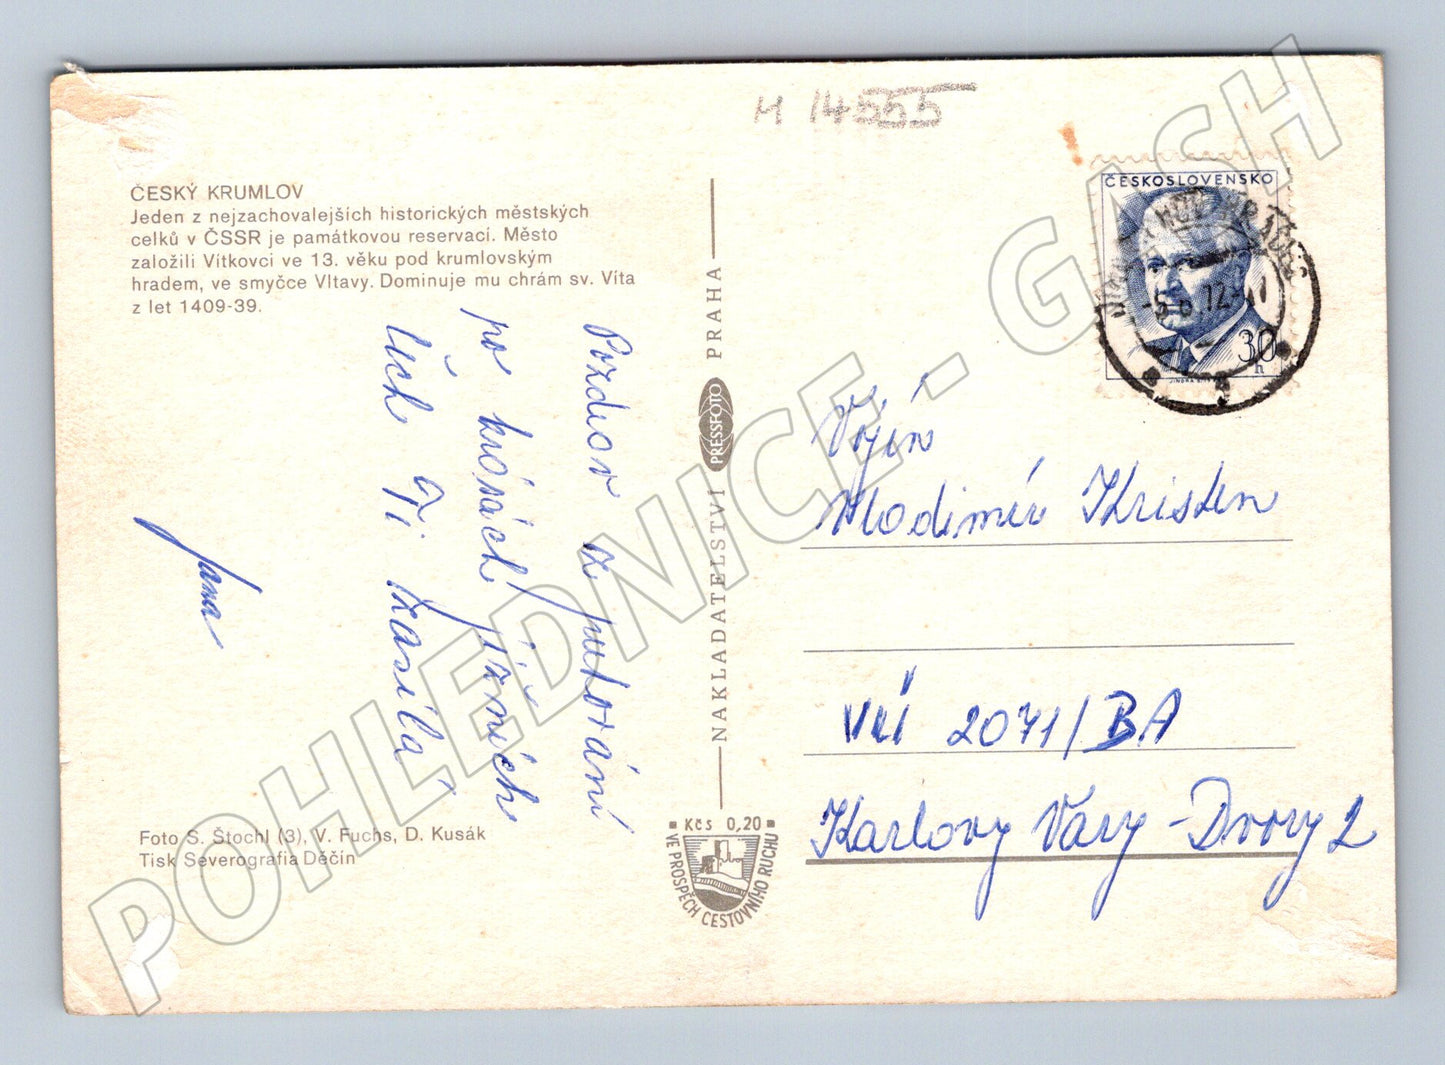 M 14555
ČESKÝ KRUMLOV
Jeden z nejzachovalejších historických městských
celků v ČSSR je památkovou reservací. Město
založili Vítkovci ve 13. věku pod krumlovským
hradem, ve smyčce Vltavy. Dominuje mu chrám sv. Víta
z let 1409-39.
Pozdrav z putování
po krásách jižních
Čech Ti zasílá
Jana
Foto S. Štochl (3), V. Fuchs, D. Kusák
Tisk Severografia Děčín
NAKLADATELSTVÍ PRESSFOTO PRAHA
Kčs 0,20
VE PROSPĚCH CESTOVNÍHO RUCHU
ČESKOSLOVENSKO
30 h
JINDŘICHŮV HRADEC
-5.6.72-
Vojín
Vladimír Kristen
VÚ 2071/BA
Karlovy Vary - Dvory 2
POHLEDNICE - GASH